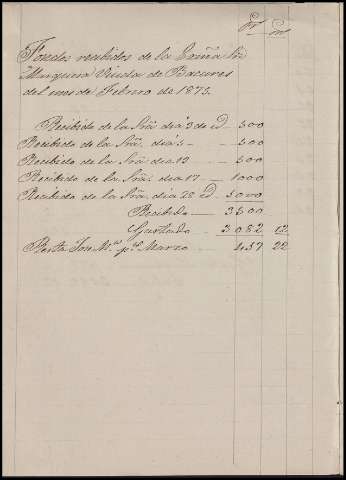 Fondos recibidos de la Exmã Srã
Marquesa Viuda de Bacares
del mes de Febrero de 1875.
Recibido de la Srã. dia 3 de id. 500
Recibido de la Srã. dia 5 - 500
Recibido de la Srã. dia 13 500
Recibido de la Srã. dia 17 - 1000
Recibido de la Srã. dia 28 id. 1000
Recibido — 3500
Gastado — 3.062 12
Resta Son Mas. pa. Marzo - 437 22